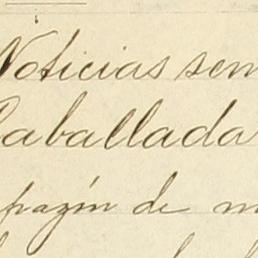 Noticias sem
Caballada
de m